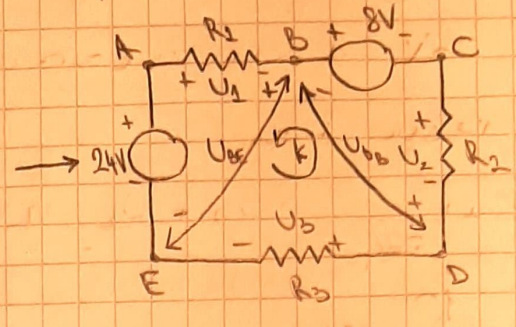 R1
+ 8V -
A B C
+ U1 - + -
+ 24V -
UBE k UDB
+ U2 - R2
- +
- U3 +
E R3 D